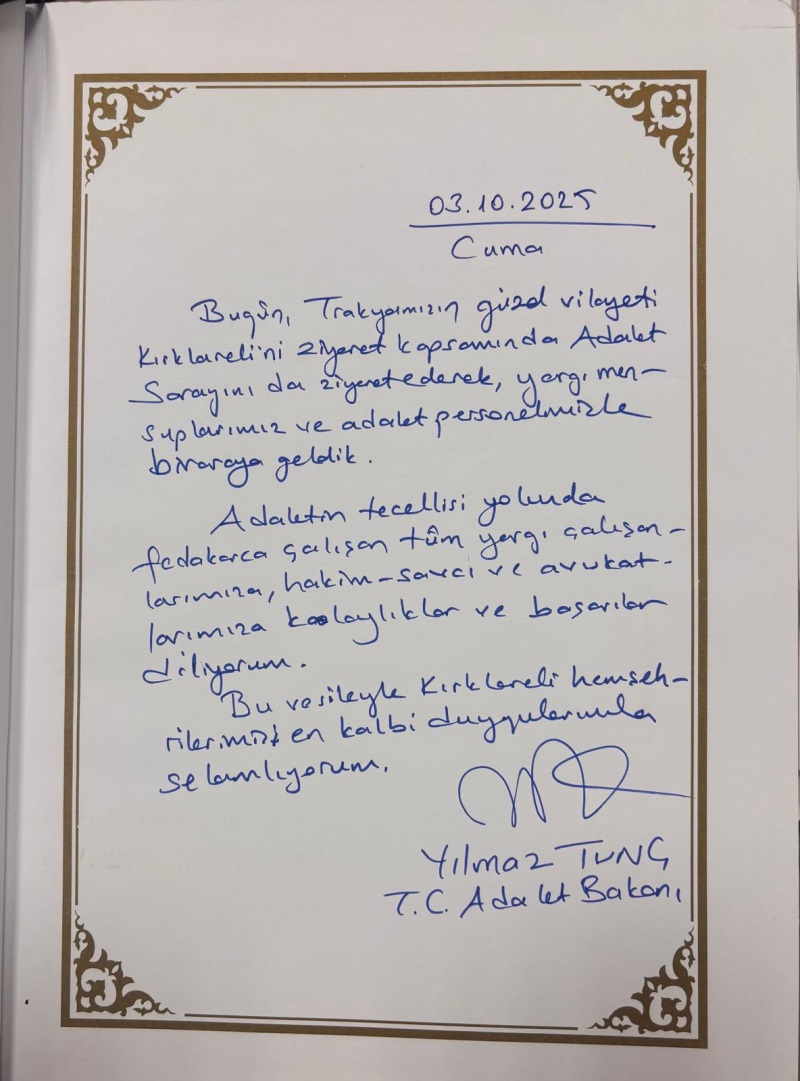 03.10.2025
Cuma
Bugün, Trakyamızın güzel vilayeti
Kırklareli'ni ziyaret kapsamında Adalet
Sarayını da ziyaret ederek, yargı men-
suplarımız ve adalet personelimizle
biraraya geldik.
Adaletin tecellisi yolunda
fedakarca çalışan tüm yargı çalışan-
larımıza, hakim-savcı ve avukat-
larımıza kolaylıklar ve başarılar
diliyorum.
Bu vesileyle Kırklareli hemşeh-
rilerimizi en kalbi duygularımla
selamlıyorum.
Yılmaz TUNÇ
T.C. Adalet Bakanı